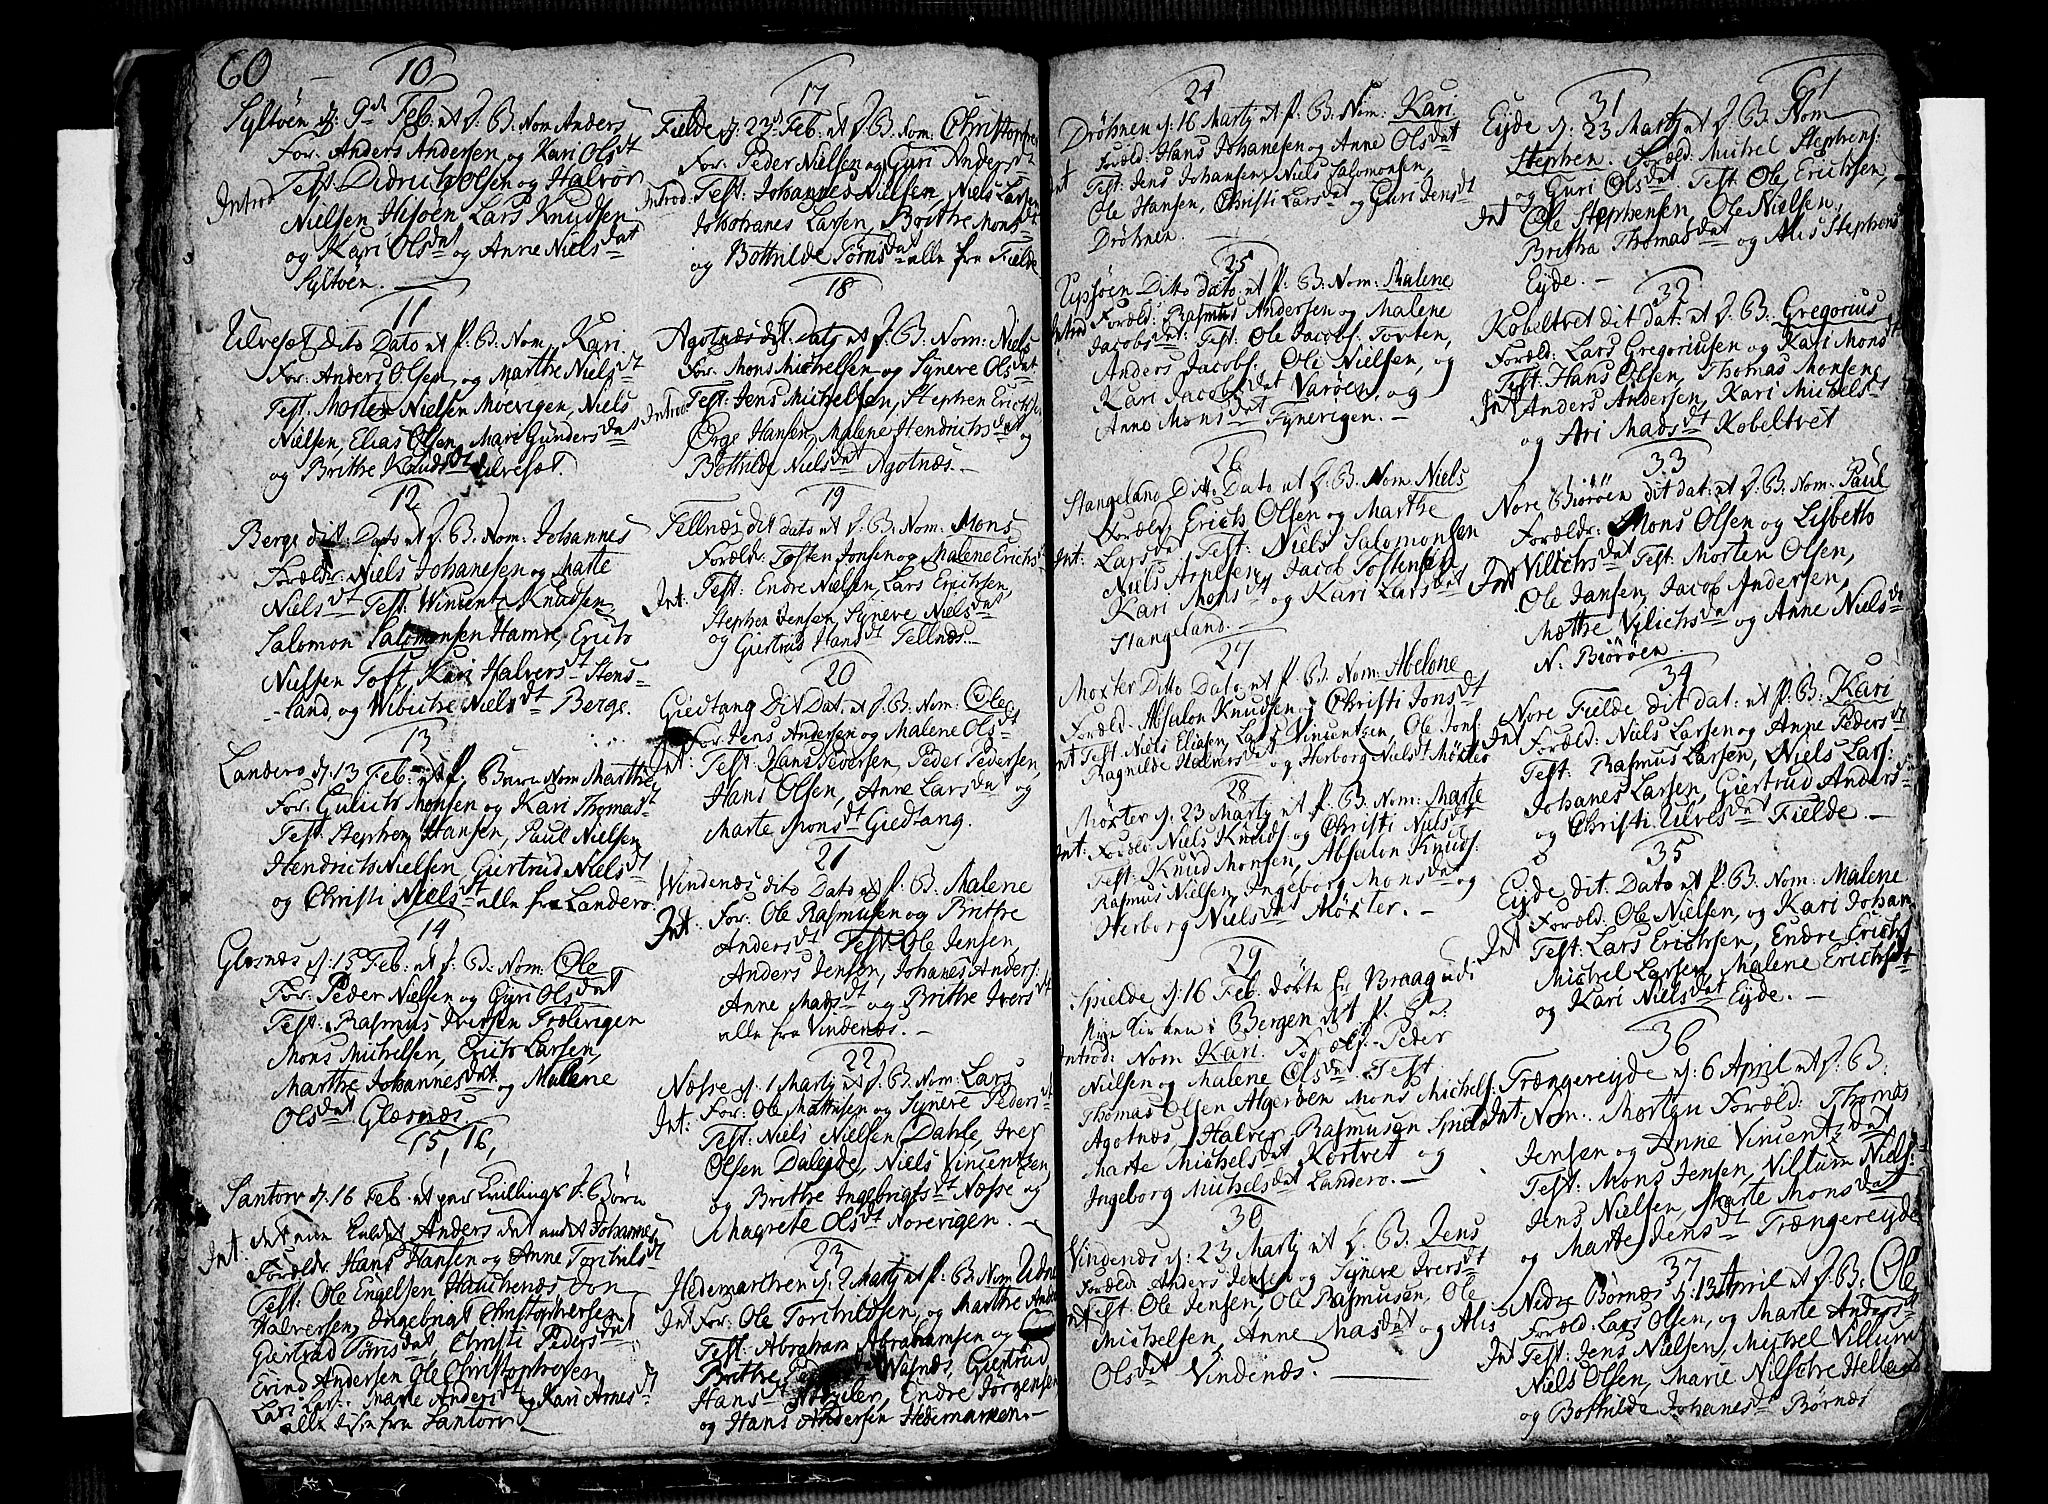 60
10
Syltöen d: 9de Feb: et P. B: Nom Anders
For: Anders Andersen, og Kari Olsdt
Test Didrich Olsen og Halvor
Introd
Nielsen Hisöen, Lars Knudsen
og Kari Olsdat og Anne Nielsdat
Syltöen. —
11
Ulvesæt Dito Dato et P. B: Nom, Kari
For: Anders Olsen, og Marthe Nielsdt
Test: Morten Nielsen Moevigen, Niels
Nielsen, Elias Olsen, Mari Gundersdat
og Brithe Knudsdt Ulvesæt.
12
Berge dit: Dato et P. B: Nom: Johannes
Foræld: Niels Johanesen og Marte
Nielsdt Test: Wincentz Knudsen,
Salomon Salomonsen Hamre, Erich
Nielsen Toft, Kari Halversdt Stens-
-land, og Wibicke Nielsdt Berge.
13
Landero d: 13 Feb: et P. Barn Nom Marthe
For: Gulich Monsen og Kari Thomasdt
Test: Stephen Hansen, Paul Nielsen
Hendrich Nielsen, Giertrud Nielsdt
og Christi Nielsdt alle fra Landero.
14
Glesnæs d: 15 Feb: et P: B: Nom: Ole
For: Peder Nielsen og Guri Olsdat
Test: Rasmus Iversen Trælevigen
Mons Michelsen, Erich Larsen,
Marthe Johannesdat og Malene
Olsdat Glæsnæs
15, 16,
Santorv d: 16 Feb: et par tvillings P. Börn
Int: det eene kaldet Anders det andet Johannes
Foræld: Hans Hansen og Anne Torchildsdt
Test: Ole Engelsen Haachenæs, Jon
Halversen, Ingebrigt Christophersen
Giertrud Tørrisdat, Christi Pedersdat
Erind Andersen Ole Christophersen
Lars Lar: Marte Andersdt og Kari Arnesdt
alle disse fra Santorv
17
Fielde d: 23d Feb: et P. B: Nom: Christopher
For: Peder Nielsen og Guri Andersdt
Introd: Test: Johannes Nielsen, Niels Larsen
Johanes Larsen, Brithe Monsdt
og Bothilde Törrisdat alle fra Fielde
18
Agotnæs dit: Dato et P. B: Nom: Niels
For: Mons Michelsen og Synneve Olsdat
Introd Test: Jens Michelsen, Stephen Erichsen
Örge Hansen, Malene Hendrichsdat og
Bothilde Nielsdat Agotnæs. —
19
Tellnæs dit dato et P. B: Nom: Mons
Foræld: Tosten Jonsen og Malene Erichsdt
Int: Test: Endre Nielsen, Lars Erichsen,
Stephen Jensen, Synneve Nielsdat
og Giertrud Hansdt Tellnæs. —
20
Giedtang Dit Dat: et P. B: Nom: Ole
For: Jens Andersen og Malene Olsdt
Int: Test: Hans Pedersen, Peder Pedersen,
Hans Olsen, Anne Larsdat og
Marte Monsdt Giedtang.
21
Windenæs dito Dato et P. B: Malene
Int: For: Ole Rasmusen og Brithe
Andersdt Test: Ole Jensen,
Anders Jensen, Johanes Anders:
Anne Madsdt og Brithe Iversdt
alle fra Vindenæs. —
22
Næsse d: 1 Martj et P. B: Nom: Lars
Int: For: Ole Mathisen og Synneve Pedersdt
Test: Niels Nielsen Dahle, Iver
Olsen Daleide, Niels Vincentzen,
og Brithe Ingebrigtsdt Næsse og
Magrete Olsdt Norevigen. —
23
Hedemarchen d: 2 Martj et P. B: Nom
Int For: Ole Torchildsen, og Marthe
Test: Abraham Abrahamsen og
Brithe Wasnæs, Giertrud
Hansdt Endre Jörgensen
og Hans Andersen Hedemarken. —
24
Dröhnen d: 16 Martj et P. B: Nom: Kari
Foræld: Hans Johanesen og Anne Olsdat
Int Test: Jens Johansen, Niels Salomonsen,
Ole Hansen, Christi Larsdat og Guri Jensdt
Dröhnen.
25
Upsöen Ditto dato et P. B: Nom: Malene
Introd Foræld: Rasmus Andersen og Malene
Jacobsdat. Test: Ole Jacobs: Torten,
Anders Jacobs: Ole Nielsen, og
Kari Jacobsdat Varöen, og
Anne Monsdat Tynevigen. —
26
Stangeland Ditto Dato et P. B: Nom: Niels
Foræld: Erich Olsen og Marthe
Int: Larsdat Test: Niels Salomonsen
Niels Arnesen, Jacob Tostensen
Kari Monsdt og Kari Larsdat
Stangeland. —
27
Moxter Ditto Dato et P. B: Nom: Abelone
Foræld: Absalon Knudsen og Christi Jonsdt
Int Test: Niels Eliasen, Lars Vincentzen, Ole Jons:
Ragnilde Halversdat og Herborg Nielsdt Möxter
28
Möxter d: 23 Martj et P. B: Nom: Marte
Int: Foræld: Niels Knuds: og Christi Nielsdt
Test: Knud Monsen, Absalon Knuds:
Rasmus Nielsen, Ingeborg Monsdat og
Herborg Nielsdat Möxter. —
29
Spielde d: 16 Feb. döbte Hr Braag udi
Nye Kirken i Bergen et P. B:
Introd: Nom Kari. Foræld: Peder
Nielsen og Malene Olsdat. Test
Thomas Olsen Algeröen Mons Michels:
Agotnæs, Halver Rasmusen Spield
Marte Michelsdat Kortvet og
Ingeborg Michelsdat Landero. —
30
Vindenæs d: 23 Martj et P. B: Jens
Foræld: Anders Jensen og Synneve Iversdt
Int Test: Ole Jensen, Ole Rasmusen, Ole
Michelsen, Anne Masdat og Alis
Olsdat Vindenæs. —
61
31
Eyde d: 23 Martj et P. B: Nom
Stephen. Foræld: Michel Stephens:
og Guri Olsdat. Test: Ole Erichsen,
Int Ole Stephensen, Ole Nielsen,
Britha Thomasdat og Alis Stephensdt
Eyde. —
32
Kobeltvet dit dat: et P. B: Gregorius
Foræld: Lars Gregoriusen og Kari Monsdt
Test: Hans Olsen, Thomas Monsen,
Int Anders Andersen, Kari Michelsdt
og Ari Madsdt Kobeltvet
33
Nore Biöröen dit dat: et P. B: Nom: Paul
Foræld: Mons Olsen og Lisbeth
Int Vilichsdat Test: Morten Olsen,
Ole Jansen, Jacob Andersen,
Mætthe Vilichsdat og Anne Nielsdt
N. Biöröen.
34
Nore Fielde dit dat: et P. B: Kari
Int Foræld: Niels Larsen og Anne Pedersdt
Test: Rasmus Larsen, Niels Lars:
Johanes Larsen, Giertrud Andersdt
og Christi Ulvesdat Fielde. —
35
Eyde dit: Dato et P. B: Nom: Malene
Foræld: Ole Nielsen, og Kari Johan
Int Test: Lars Erichsen, Endre Erichs
Michel Larsen, Malene Erichsdt
og Kari Nielsdat Eyde. —
36
Trængereyde d: 6 April et P. B:
Int Nom: Mortan Foræld: Thomas
Jensen og Anne Vincentzdat
Test: Mons Jensen, Villum Niels:
Jens Nielsen, Marte Monsdat
og Marte Jensdt Trængereyde
37
Nedre Börnæs d: 13 April et P. B: Ole
Foræld: Lars Olsen, og Marte Andersdt
Int Test: Jens Nielsen, Michel Villum
Niels Olsen, Marie Nilsdtre Helland
og Bothilde Johanesdt Börnæs